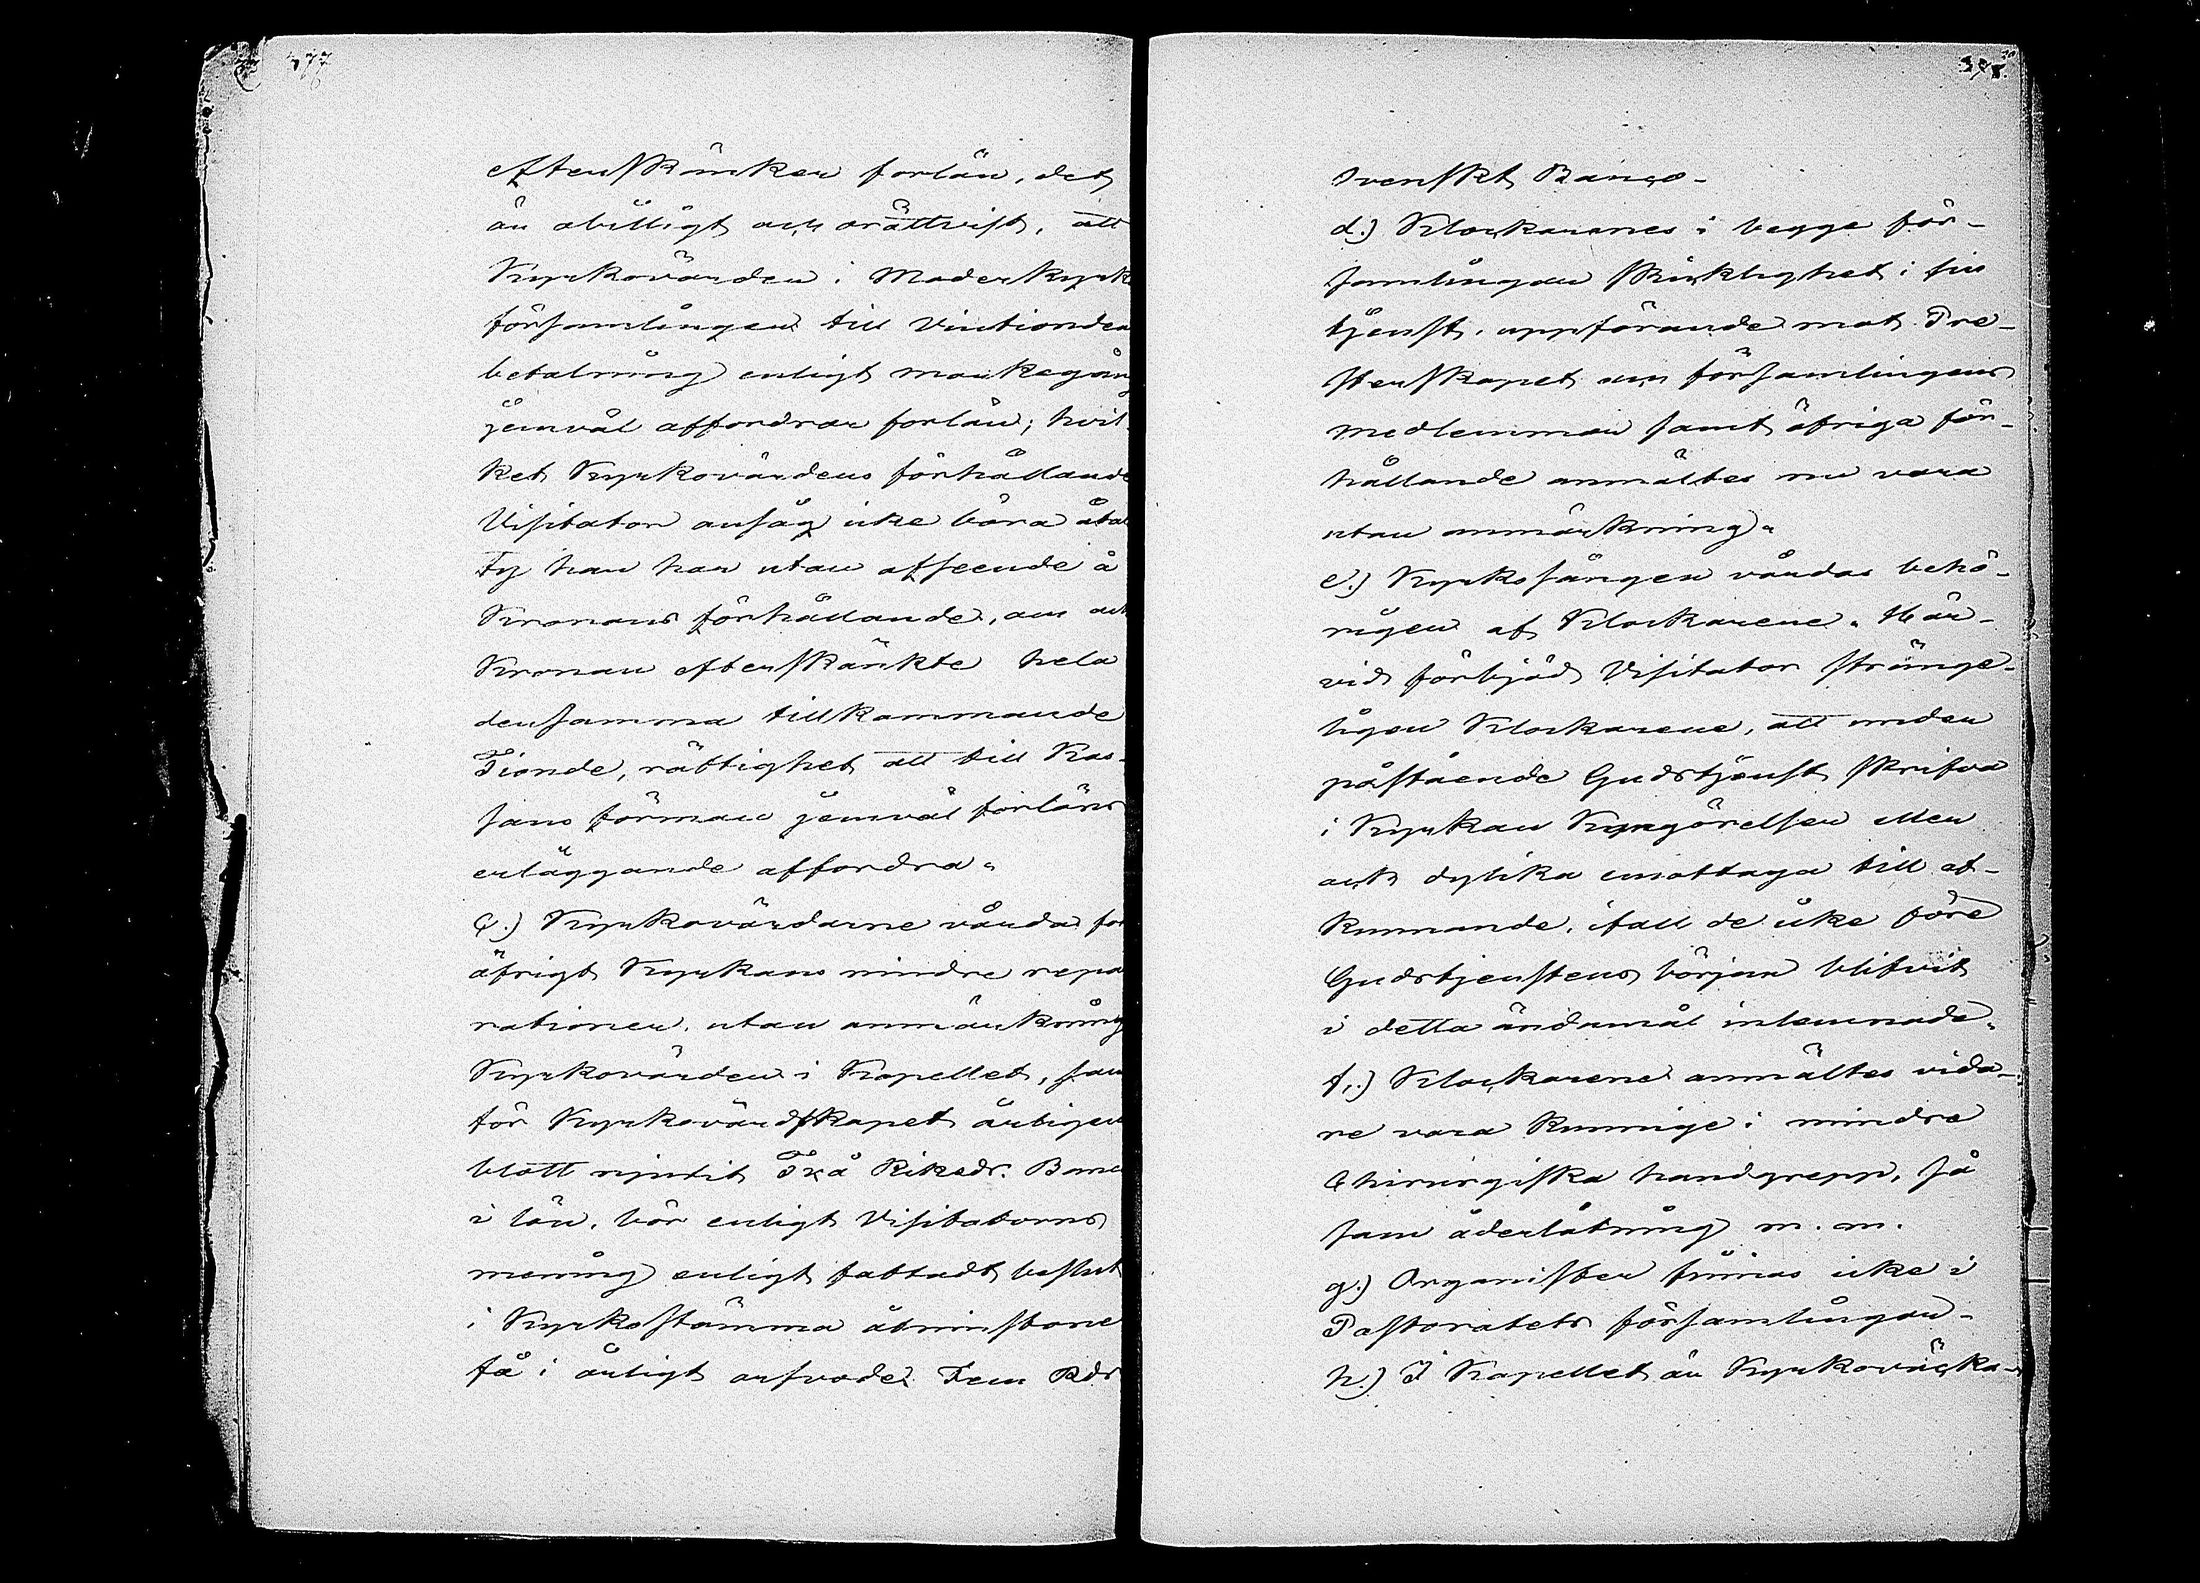 377
efterskänker forlön, det
är obilligt och orättvist, att
Kyrkovärden i Moderkyrk
församlingen till Vintionden
betalning enligt markegång
jemväl affordrar forlön; hvil-
ket Kyrkovärdens förhållande
Visitator ansåg icke böra åtal
Ty han har utan afseende å
Kronans förhållande, om och
Kronan efterskänkte hela
densamma tillkommande
Tionde, rättighet att till Kas-
sans förmån jemväl forlöns
erläggande affordra.
C.) Kyrkovärdarne vårda för
öfrigt Kyrkans mindre repa
rationer, utan anmärkning
Kyrkovärden i Kapellet, som
för Kyrkovärdskapet årligen
blott njutit Två Riksdr. Banco
i lön, bör enligt Visitatorns
mening enligt fattadt beslut
i Kyrkostämma åtminstone
få i årligt arfvode Fem Rdr
378.
Svenskt Banco-
d.) Klockarenes i begge för-
samlingar skicklighet i sin
tjenst, uppförande mot Pre-
sterskapet och församlingens
medlemmar samt öfriga för-
hållande anmältes nu vara
utan anmärkning.
e.) Kyrkosången vårdas behö-
rigen af Klockarene. Här-
vid förbjöd Visitator stränge-
ligen Klockarene, att under
påstående Gudstjenst skrifva
i Kyrkan Kungörelser eller
ock dylika emottaga till af-
kunnande, ifall de icke före
Gudstjenstens början blifvit
i detta ändamål inlemnade.
f.) Klockarene anmältes vida-
re vara kunnige i mindre
Chirurgiska handgrepp, så
som åderlåtning m. m.
g.) Organister finnas icke i
Pastoratets församlingar.
h.) I Kapellet är Kyrkoväcka-